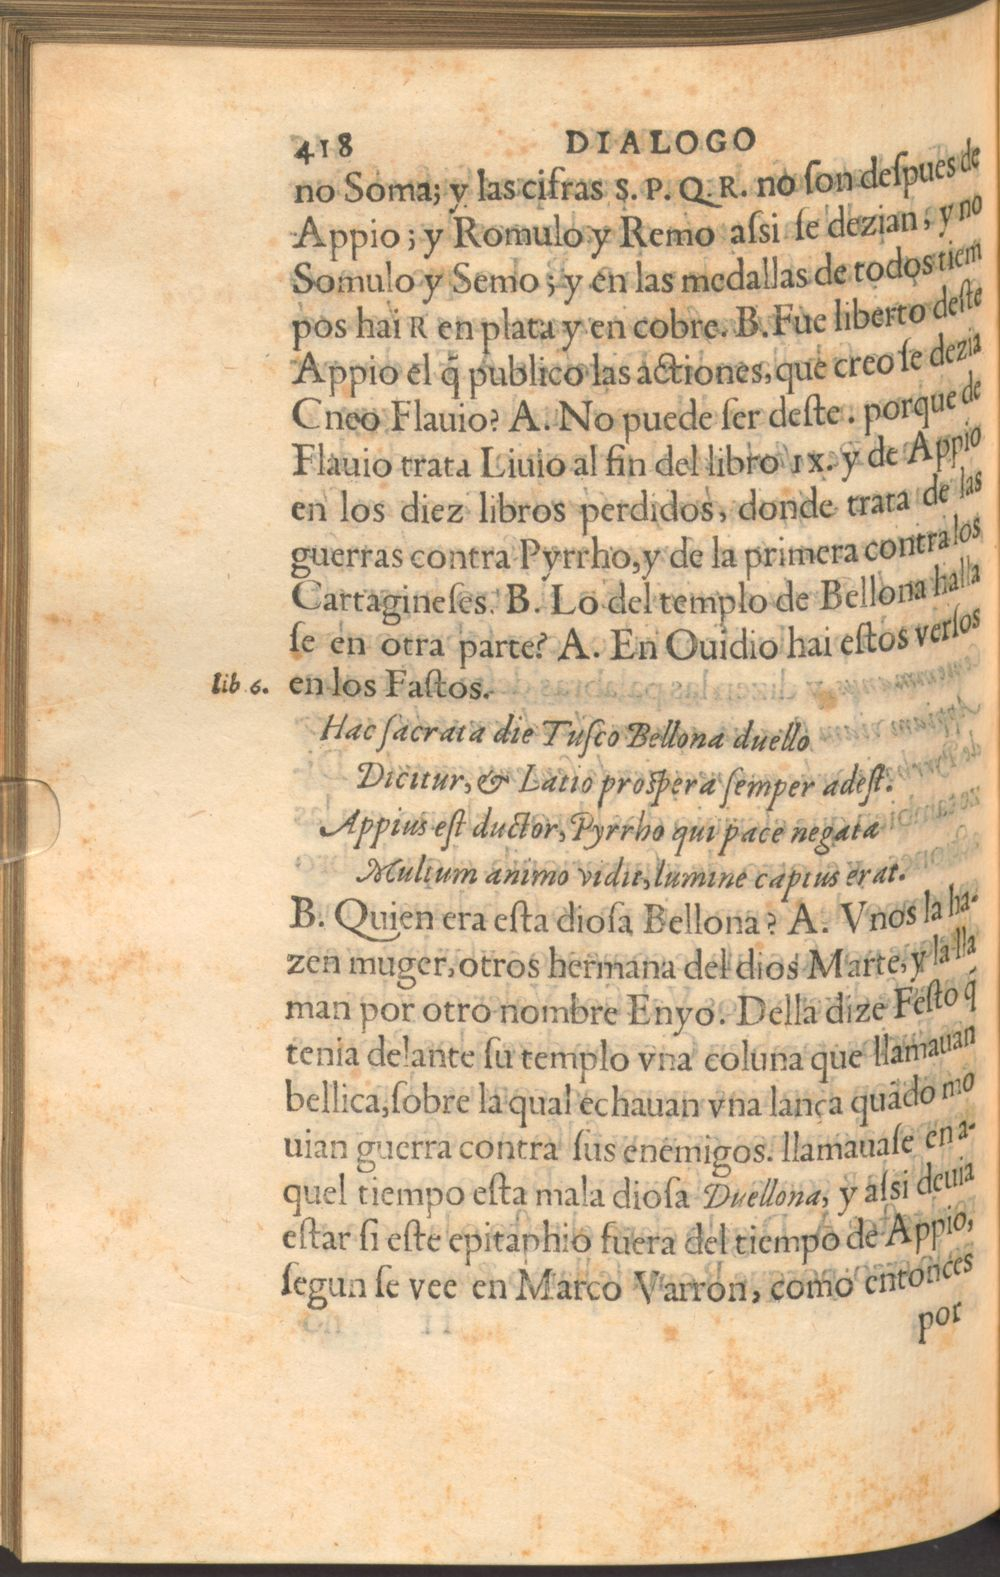 418 DIALOGO
no Soma; y las cifras S. P. Q. R. no ſon deſpues de
Appio; y Romulo y Remo aſsi ſe dezian, y no
Somulo y Semo; y en las medallas de todos tiem
pos hai R en plata y en cobre. B. Fue liberto deſte
Appio el q̃ publico las actiones, que creo ſe dezia
Cneo Flauio? A. No puede ſer deſte. porque de
Flauio trata Liuio al fin del libro IX. y de Appio
en los diez libros perdidos, donde trata de las
guerras contra Pyrrho, y de la primera contra los
Cartagineſes. B. Lo del templo de Bellona halla
ſe en otra parte? A. En Ouidio hai eſtos verſos
lib 6. en los Faſtos.
Hac ſacrata die Tuſco Bellona duello
Dicitur, & Latio proſpera ſemper adeſt.
Appius eſt ductor, Pyrrho qui pace negata
Multum animo vidit, lumine captus erat.
B. Quien era eſta dioſa Bellona? A. Vnos la ha-
zen muger, otros hermana del dios Marte, y la lla
man por otro nombre Enyo. Della dize Feſto q̃
tenia delante ſu templo vna coluna que llamauan
bellica, ſobre la qual echauan vna lança quãdo mo
uian guerra contra ſus enemigos. llamauaſe en a-
quel tiempo eſta mala dioſa Duellona, y aſsi deuia
eſtar ſi eſte epitaphio fuera del tiempo de Appio,
ſegun ſe vee en Marco Varron, como entonces
por